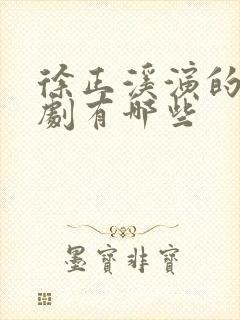 徐正溪演的
劇有哪些
墨寶非寶